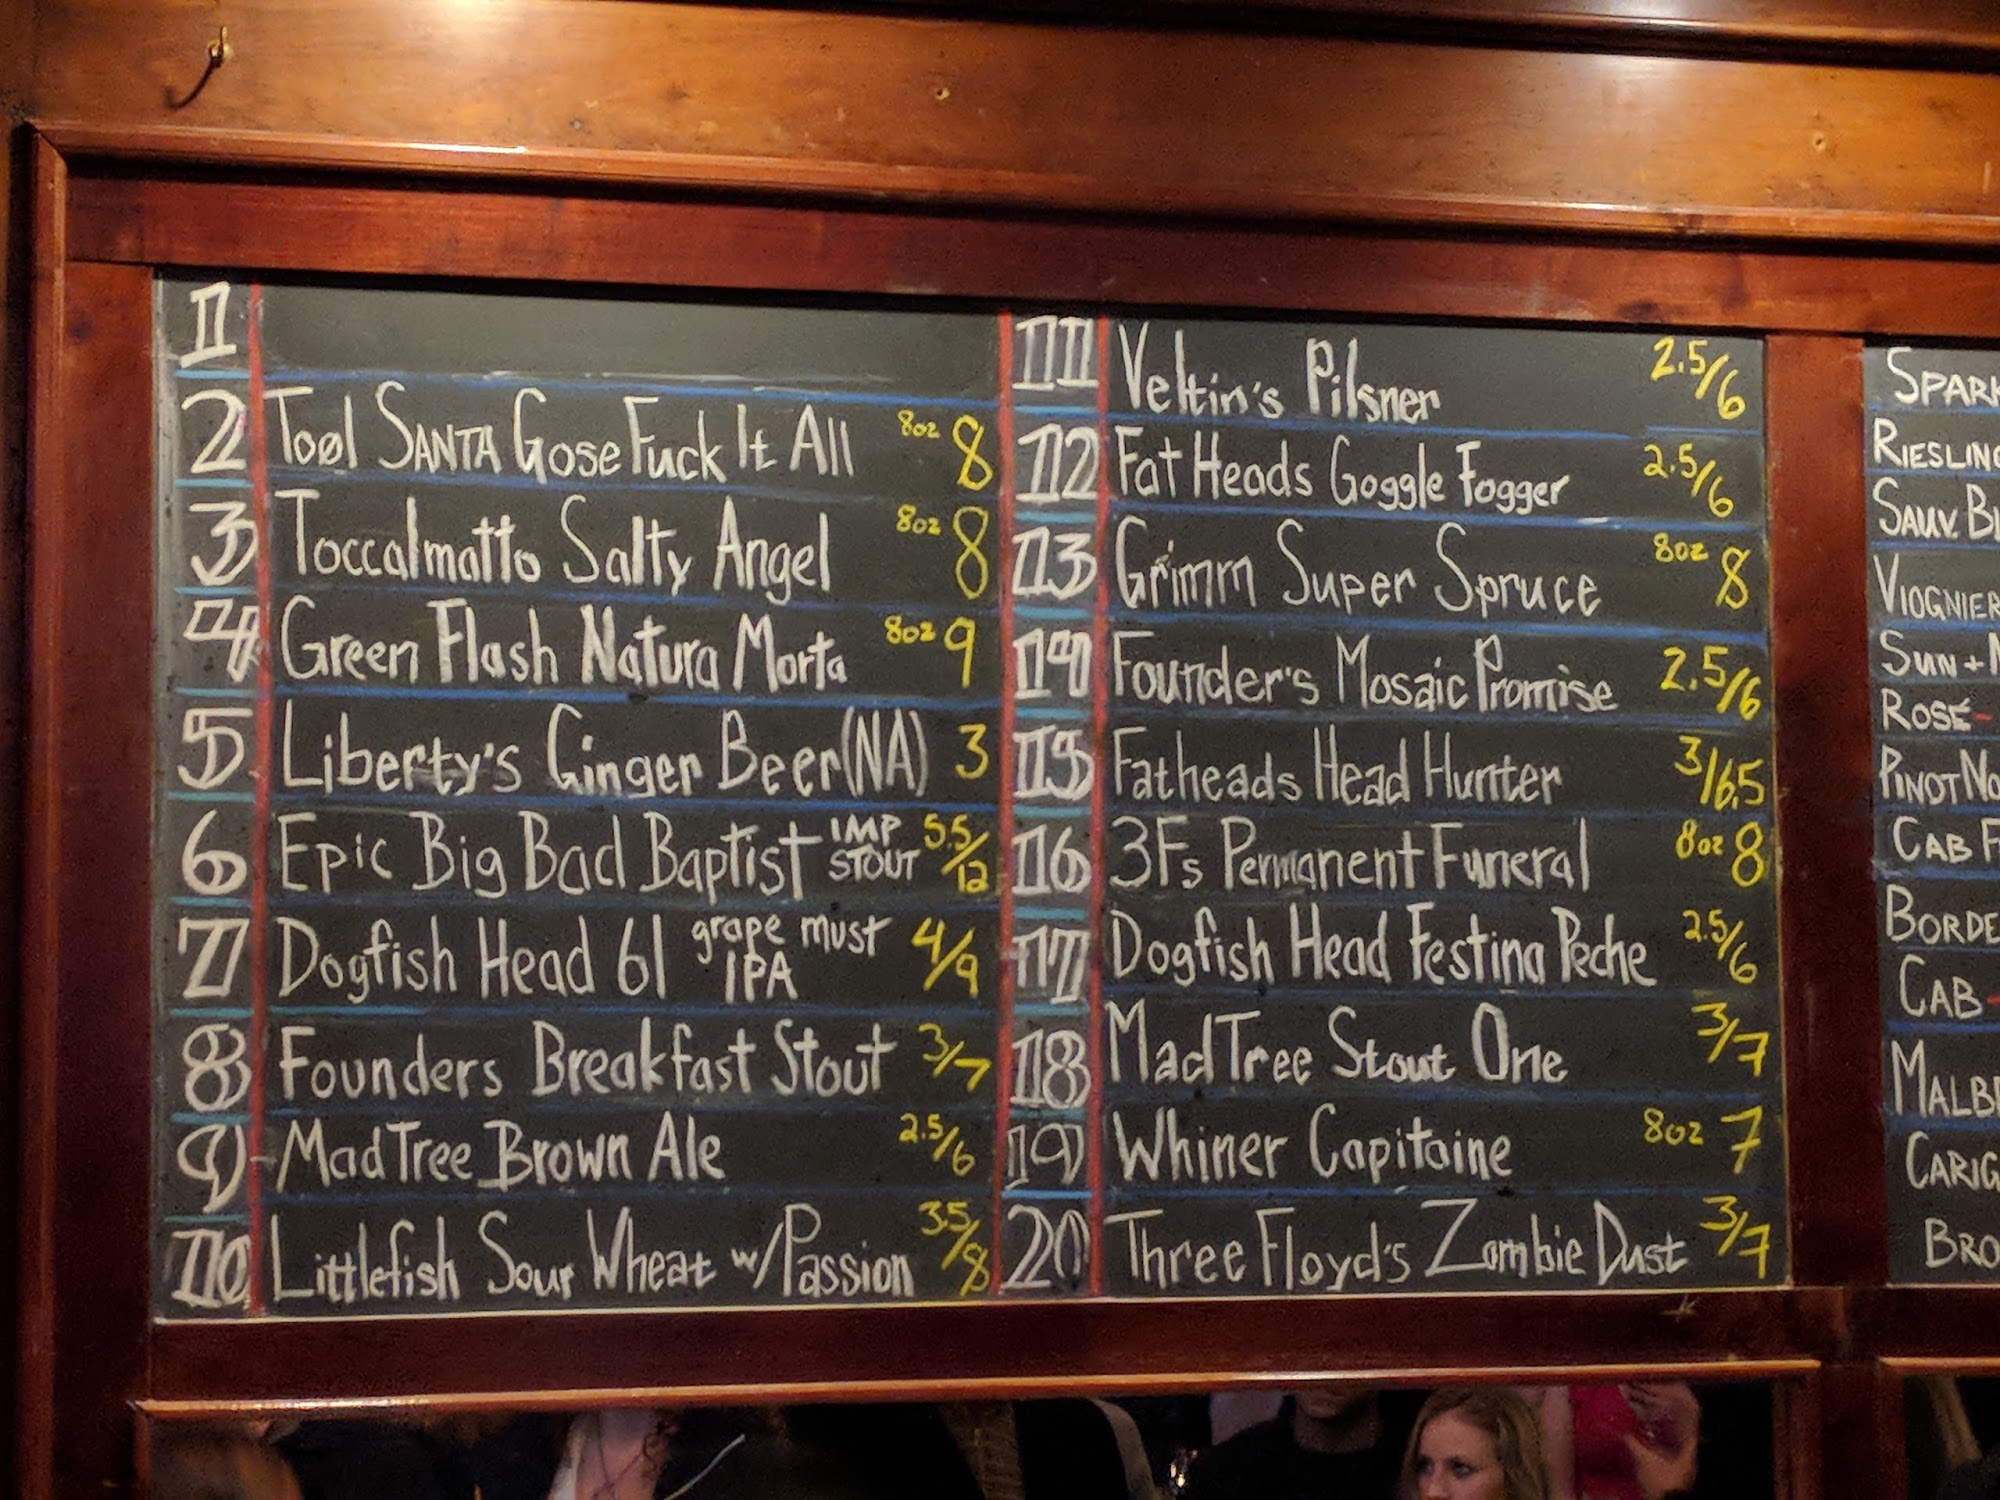 1
2 Toøl SANTA Gose Fuck It All 8oz 8
3 Toccalmatto Salty Angel 8oz 8
4 Green Flash Natura Morta 8oz 9
5 Liberty's Ginger Beer (NA) 3
6 Epic Big Bad Baptist IMP STOUT 5.5/12
7 Dogfish Head 61 grape must IPA 4/9
8 Founders Breakfast Stout 3/7
9 MadTree Brown Ale 2.5/6
10 Littlefish Sour Wheat w/Passion 3.5/8
11 Veltin's Pilsner 2.5/6
12 Fat Heads Goggle Fogger 2.5/6
13 Grimm Super Spruce 8oz 8
14 Founder's Mosaic Promise 2.5/6
15 Fatheads Head Hunter 3/6.5
16 3Fs Permanent Funeral 8oz 8
17 Dogfish Head Festina Peche 2.5/6
18 MadTree Stout One 3/7
19 Whiner Capitaine 8oz 7
20 Three Floyd's Zombie Dust 3/7
SPARK
RIESLING
SAUV. BL
VIOGNIER
SUN + M
ROSÉ -
PINOT NO
CAB F
BORDE
CAB -
MALBE
CARIG
BRO